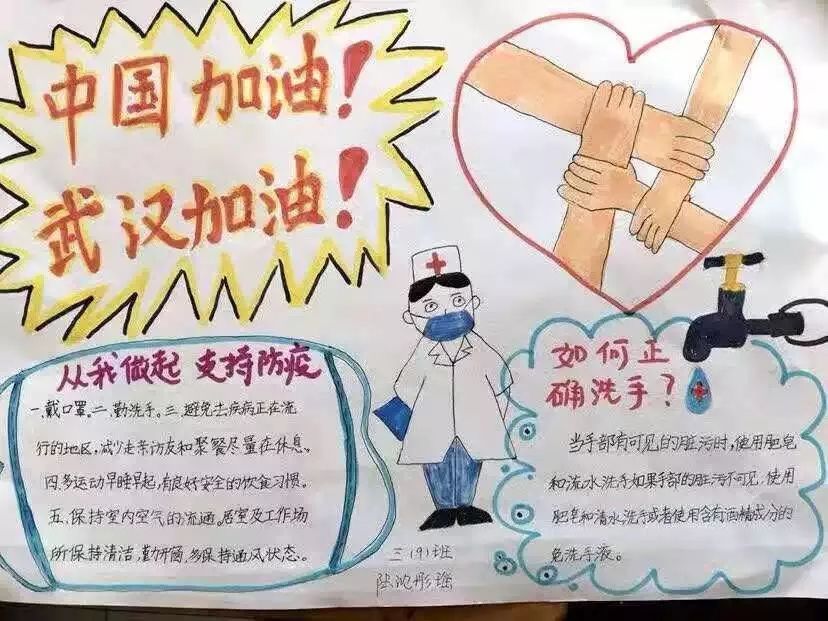 中国加油！
武汉加油！
从我做起 支持防疫
一.戴口罩。二.勤洗手。三.避免去疾病正在流
行的地区,减少走亲访友和聚餐尽量在休息。
四.多运动早睡早起,有良好安全的饮食习惯。
五.保持室内空气的流通。居室及工作场
所保持清洁,勤开窗,多保持通风状态。
如何正
确洗手？
当手部有可见的脏污时,使用肥皂
和流水洗手如果手部的脏污不可见,使用
肥皂和清水洗手或者使用含有酒精成分的
免洗手液。
三(9)班
陆沈彤瑶